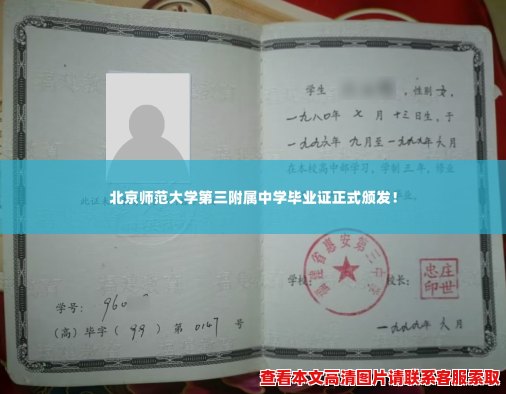 学生 ，性别 女，
一九八〇年 七 月 十三日生，于
一九九六年 九月至一九九九年 六月
在本校高中部学习，学制 三 年，修业
北京师范大学第三附属中学毕业证正式颁发！
此证
毕业。
福建省惠安第三中学
学校： 校长：
庄世忠印
学号： 960
（高）毕字（ 99 ） 第 0147 号
一九九九年 六 月
查看本文高清图片请联系客服索取